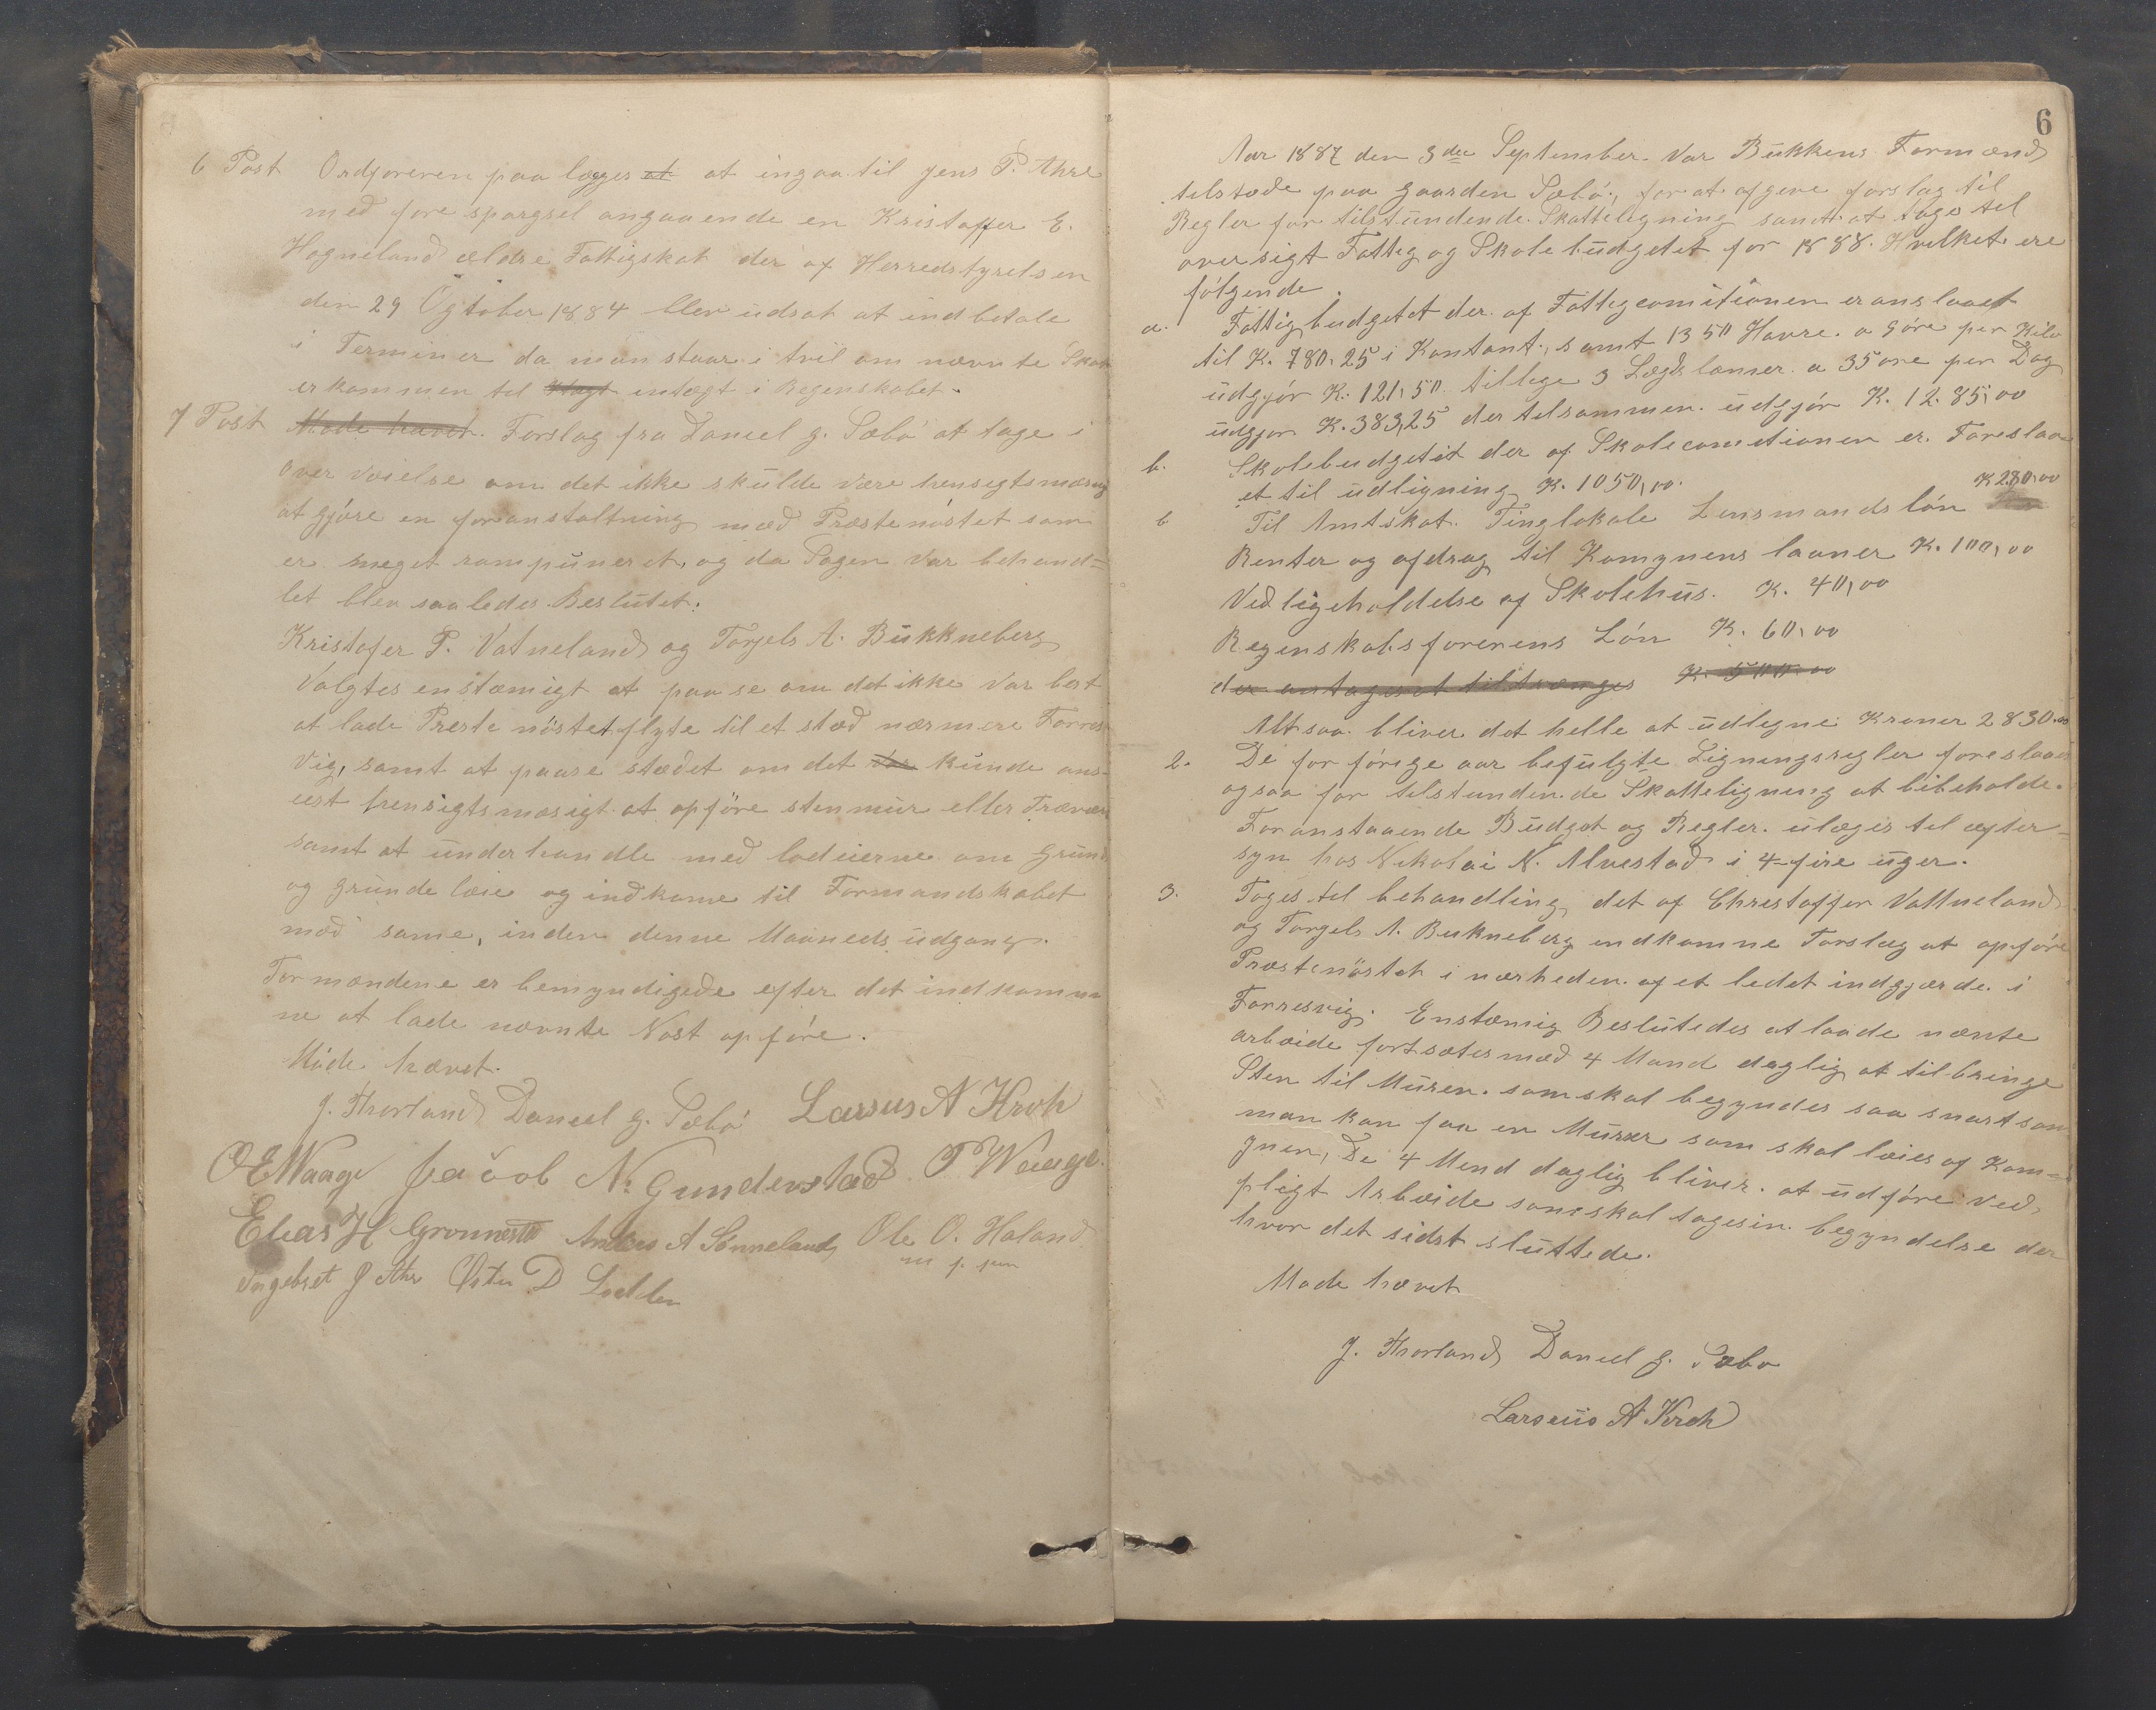 6 Post Ordføreren paa lægges at at ingaa til Jens P. Ahre
med fore spørgsel angaaende en Kristoffer E.
Hogneland ældre Fattigskat der af Herredstyrelsen
den 29 Ogtober 1884 blev udsat at indbetale
i Terminer da man staar i tvil om nævnte Skat
er kommen til intægt i Regenskabet.
7 Post Møde hævet. Forslag fra Daniel G. Sæbø at tage i
over veielse om det ikke skulde være hensegtsmæsig
at gjøre en foranstaltning mæd Præstenøstet som
er meget rampuneret, og da Sagen var behand=
let blev saaledes Beslutet.
Kristofer P. Vatneland og Torgels A. Bukkneberg
Valgtes enstæmigt at paa se om det ikke var best
at lade Preste nøstet flyte til et stæd nærmere Forres
vig, samt at paase stædet om det var kunde ans-
eest hensigtsmæsigt at opføre stenmur eller Trævær
samt at underhandle med lodeierne om Grund
og Grunde leie og indkome til Formandskabet
mæd same, inden denne Maaneds udgang.
Formændene er bemyndigede efter det indkomm
ne at lade nævnte Nøst opføre.
Møde hævet.
J. Thorland Daniel G. Sæbø Larsus A Kroh
O E Waage Jacob N. Gunderstad T Waage
Elias H Grønnestø Anders A Sønneland Ole O. Haland
m f. pen
Ingebret J Ahr Østen D Lodden
6
Aar 1887 den 3die September. Var Bukkens Formænd
tilstæde paa Gaarden Sæbø, for at afgeve forslag til
Regler for tilstundende Skatteligning samt at tage til
oversigt Fattig og Skole budgetet for 1888. Hvilket ere
følgende.
a. Fattigbudgetet der af Fattigcomitionen er anslaaet
til K. 780,25 i Kontant, samt 1350 Havre. a 9øre per Kilo
udgjør K. 121,50. tillige 3 Lægdslæmer. a 35 øre per Dag
udgjør K. 383,25 der tilsammen udgjør K. 12.85,00
b. Skolebudgetet der af Skolecometionen er. Foreslaa
et til udligning K. 1050,00.
c Til Amtskat. Tinglokale Lensmandsløn K 280,00
Renter og afdrag til Komynens laaner K. 100,00
Vedligeholdelse af Skolehus. K. 40,00
Regenskabsførerens Løn K. 60,00
der antages at tiltrænges K. 500.00
Altsaa bliver det helle at udlegne Kroner 2830.00
2. De for førige aar befulgte Ligningsregler foreslaaes
ogsaa for tilstunden.de Skatteligning at bibeholde.
Foranstaaende Budget og Regler. ulæges til efter=
syn hos Nikolai N. Alvestad i 4-fire uger.
3. Toges til behandling det af Christoffer Vattneland
og Torgels A. Bukneberg indkomne Forslag at opføre
Præstenøstet i nærheden af et ledet indgjærde i
Forresvig. Enstæmig Beslutedes at laade nænte
arbeide fortsætes mæd 4 Mand daglig at tilbringe
Sten til Muren. som skal begyndes saa snart som
man kan faa en Murer som skal læies af Kom=
ynen, De 4 Mend daglig bliver. at udføre ved
pligt Arbeide som skal tages in. begyndelse der
hvor det sidst sluttede.
Møde hævet
J. Thorland Daniel G. Sæbø
Larseus A Kroh